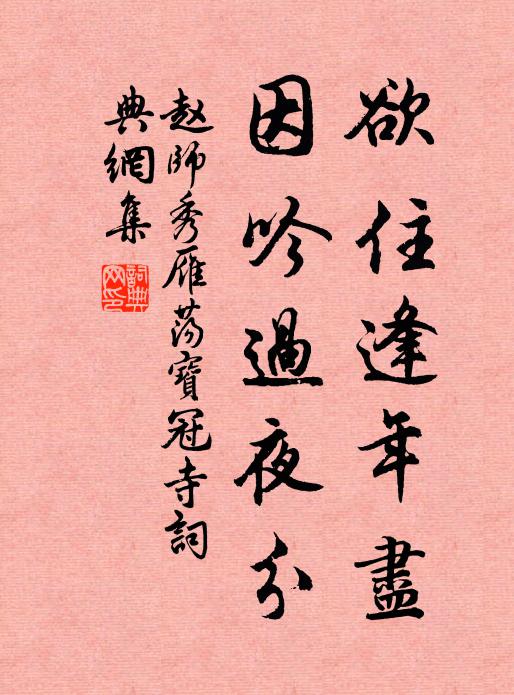 欲住逢年盡
因吟過夜分
赵師秀雁荡寶冠寺詞
典網集
詞典網印